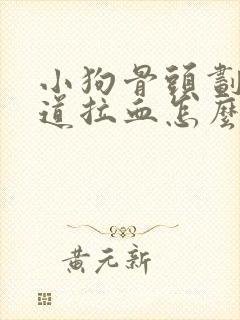 小狗骨頭劃
道拉血怎麼
黃元新